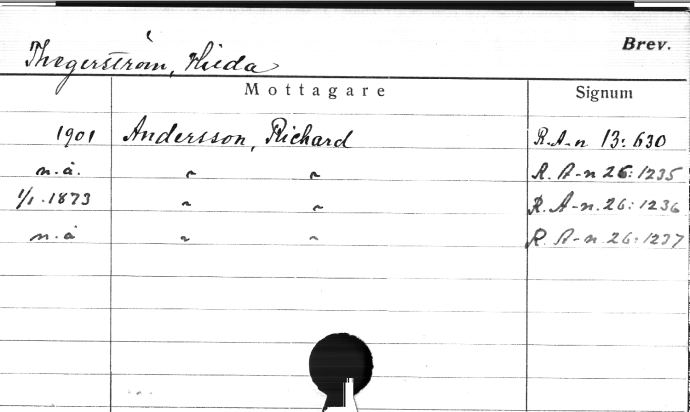 Brev.
Thegerström, Hilda
Mottagare Signum
1901 Andersson, Richard R.A-n 13:630
n.å. " " R.A-n 26:1235
1/1.1873 " " R.A-n.26:1236
n.å " " R.A-n.26:1237